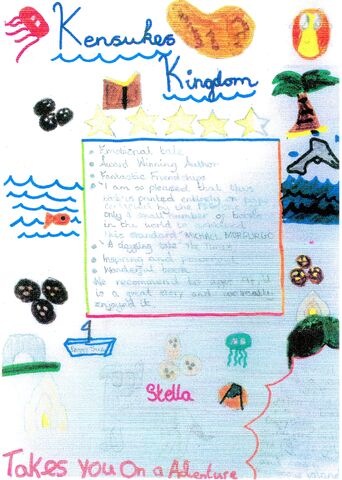 Kensukes
Kingdom
Emotional tale
Award Winning Author
Fantastic Friendships
"I am so pleased that this
book is printed entirely on
only a small number of books
in the world to
this standard" MICHAEL MORPURGO
"A dazzling tale" The Times
Inspiring and
Wonderful book
We recommend to ages
is a great story and we really
enjoyed it
Stella
Takes You On a Adventure